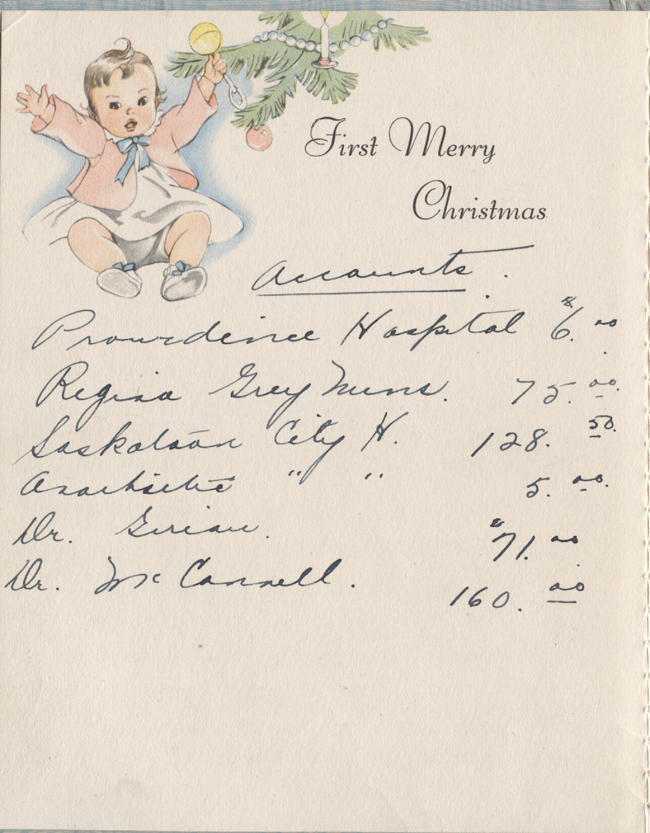 First Merry
Christmas
Accounts.
Prowidince Hospital $6.00
Regina Grey Nuns. 75.00
Saskatoon City H. 128.50
" " 5.00
Dr. $71.00
Dr. McConnell. 160.00